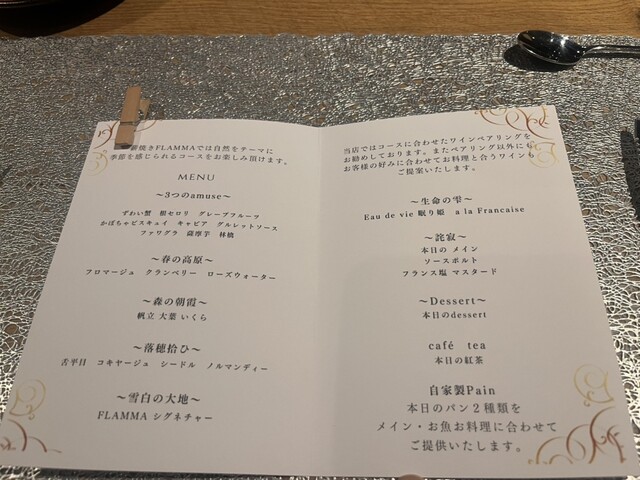 薪焼きFLAMMAでは自然をテーマに
季節を感じられるコースをお楽しみ頂けます。
MENU
～3つのamuse～
ずわい蟹 根セロリ グレープフルーツ
かぼちゃビスキュイ キャビア グルレットソース
ファワグラ 薩摩芋 林檎
～春の高原～
フロマージュ クランベリー ローズウォーター
～森の朝霞～
帆立 大葉 いくら
～落穂拾ひ～
舌平目 コキヤージュ シードル ノルマンディー
～雪白の大地～
FLAMMA シグネチャー
当店ではコースに合わせたワインペアリングを
お勧めしております。またペアリング以外にも
お客様の好みに合わせてお料理と合うワインも
ご提案いたします。
～生命の雫～
Eau de vie 眠り姫 a la Francaise
～詫寂～
本日の メイン
ソースポルト
フランス塩 マスタード
～Dessert～
本日のdessert
café tea
本日の紅茶
自家製Pain
本日のパン２種類を
メイン・お魚お料理に合わせて
ご提供いたします。